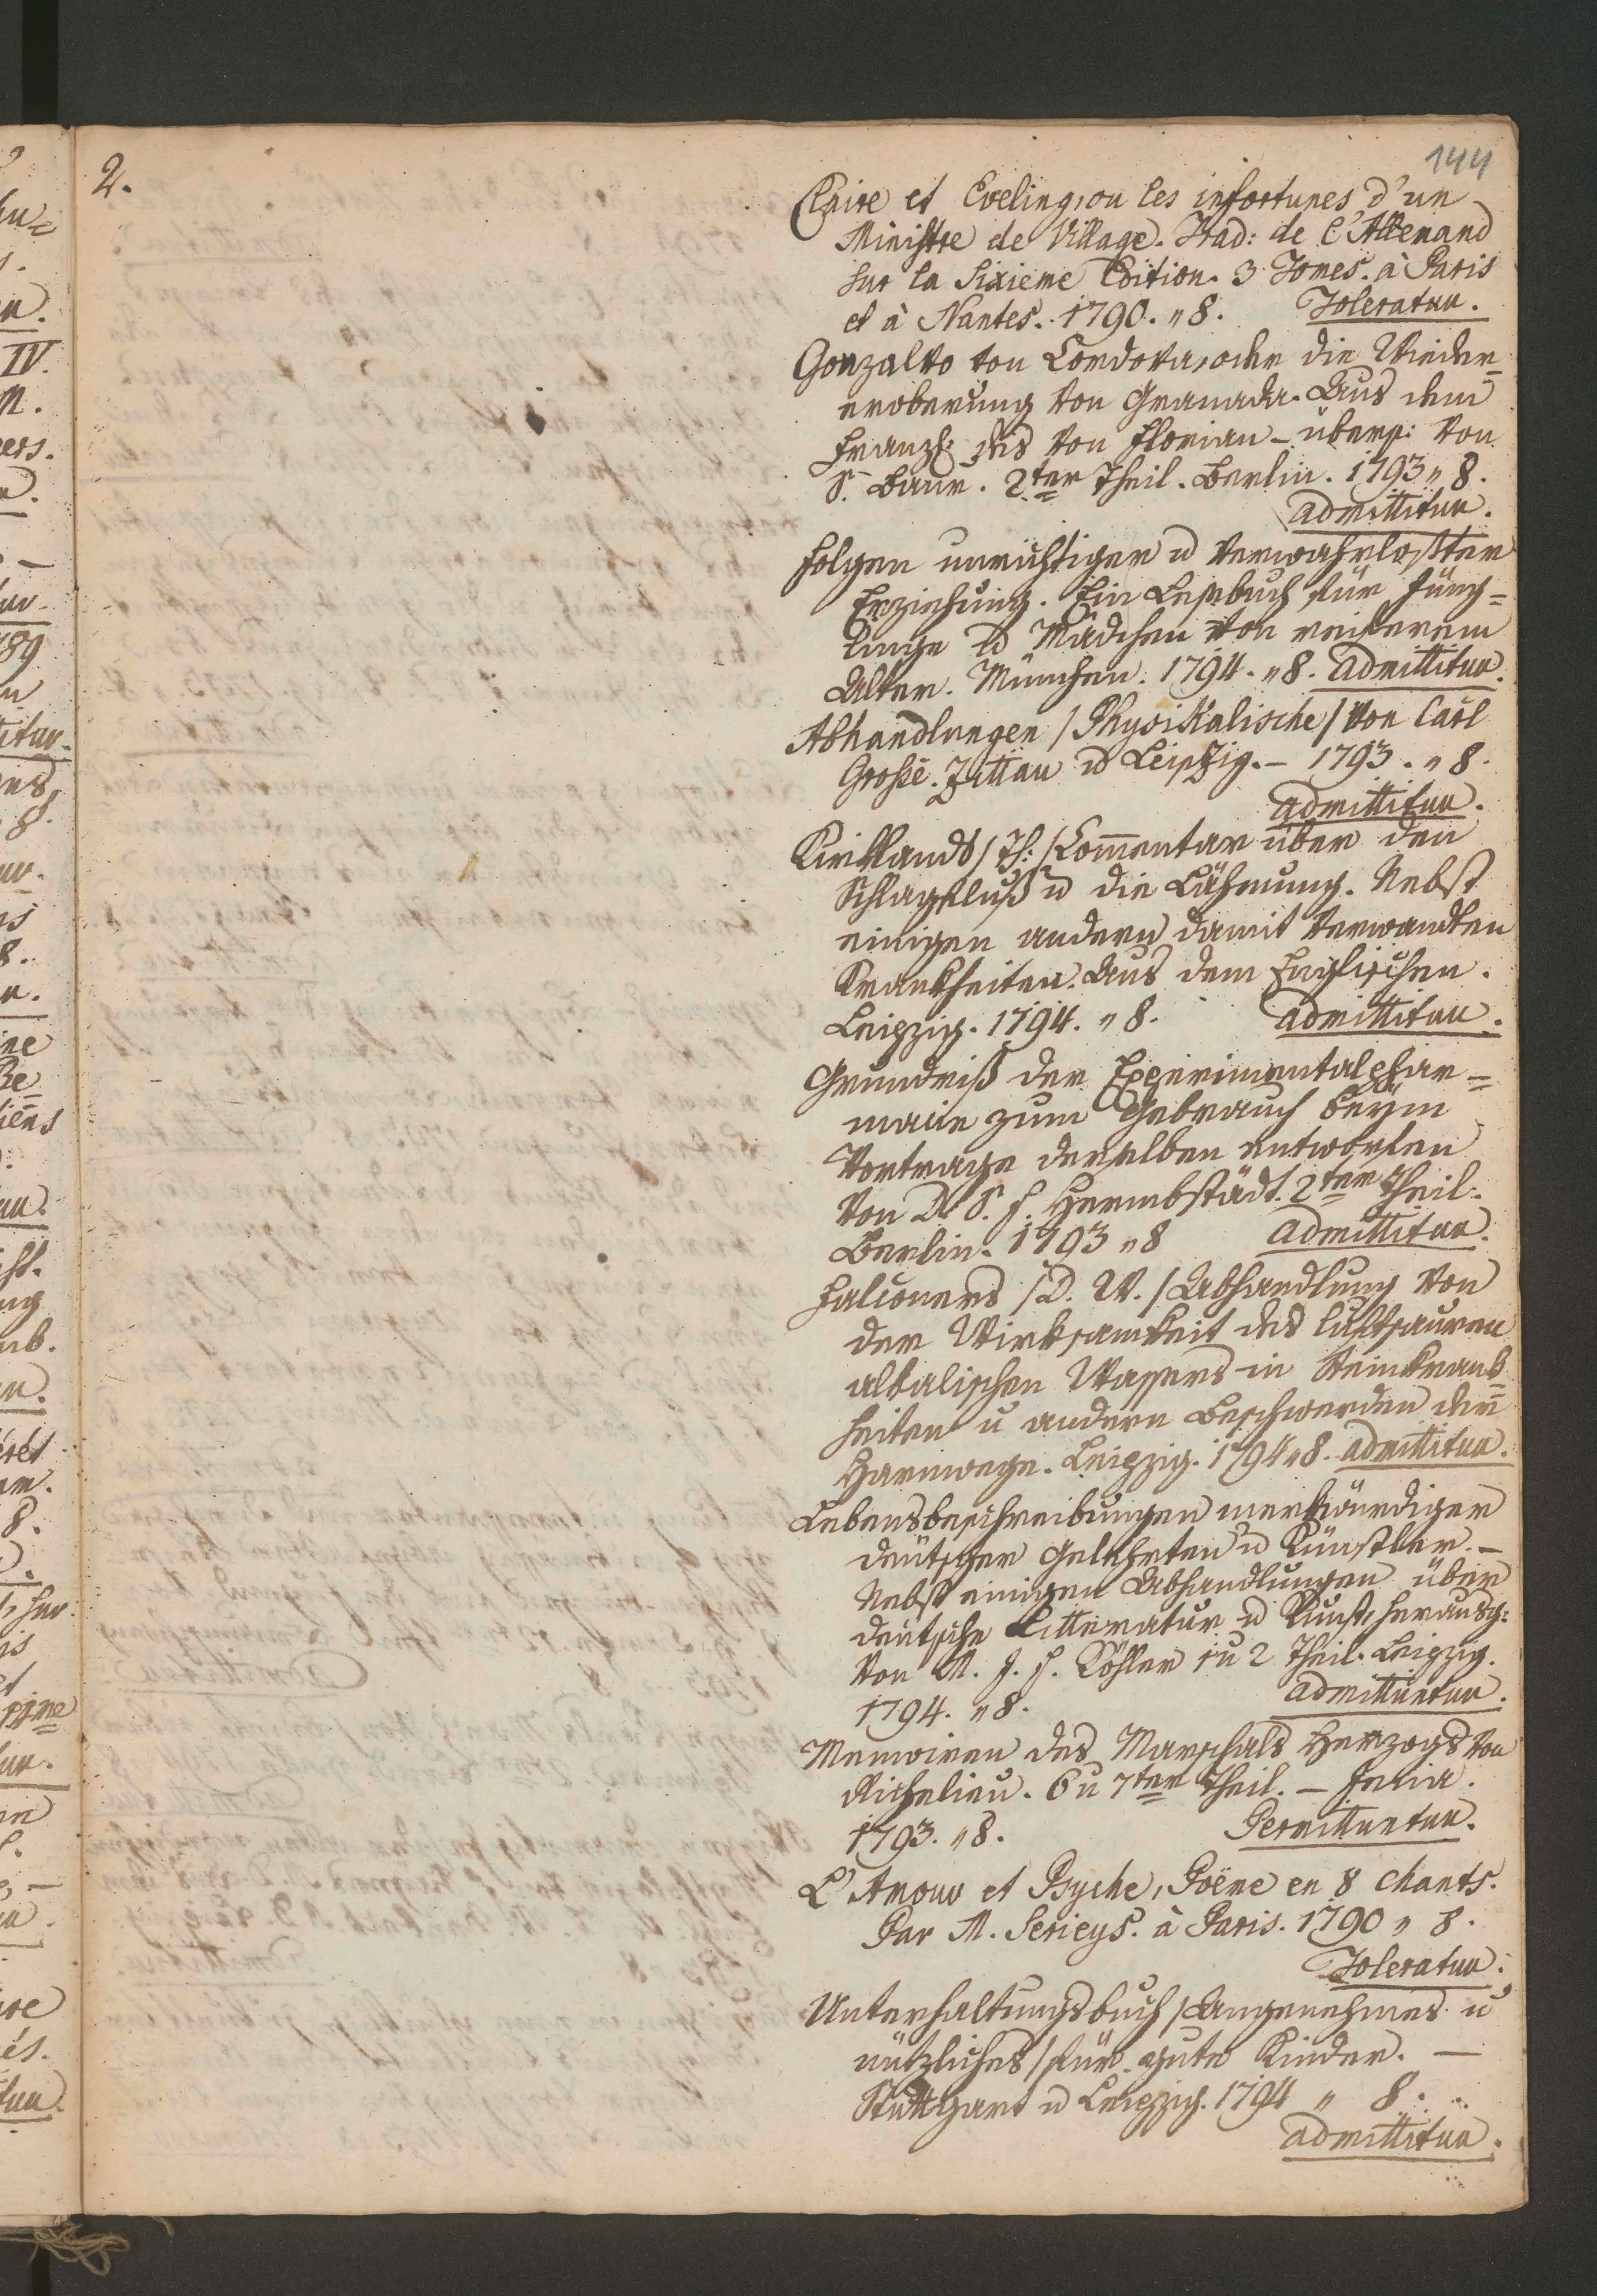 144
2.
Claire et Eveling, ou les infortunes d'un
Ministre de Village. Trad: de l'Allemand
sur la Sixieme Edition. 3 Tomes. à Paris
et à Nantes. 1790. „ 8. Toleratur.
Gonzalvo von Cordova, oder die Wieder=
eroberung von Granada. Aus dem
Franzs: des von Florian – übers: von
S. Baur. 2ter Theil. Berlin. 1793 „ 8.
admittitur.
Folgen unrichtiger u verwahrloster
Erziehung. Ein Lesebuch für Jüng=
linge u Mädchen von reiferem
Alter. München. 1794. „ 8. admittitur.
Abhandlungen / Physikalische / von Carl
Große. Zittau u Leipzig. – 1793. „ 8.
admittitur.
Kirklands / Th: / Com̄entar über den
Schlagfluß u die Lähmung. Nebst
einigen andern damit verwandten
Krankheiten. Aus dem Englischen.
Leipzig. 1794. „ 8. admittitur.
Grundriß der Experimentalphar=
macie zum Gebrauch beÿm
Vortrage derselben entworfen
von D. S. F. Hermbstädt. 2ter Theil.
Berlin. 1793 „ 8 admittitur.
Falconers / D. W. / Abhandlung von
der Wirksamkeit des luftsauren
alkalischen Wassers in Steinkrank=
heiten u andern Beschwerden der
Harnwege. Leipzig. 1794 „ 8. admittitur.
Lebensbeschreibungen merkwürdiger
deutscher Gelehrten u Künstler. –
Nebst einigen Abhandlungen über
deutsche Litteratur u Kunst, herausg:
von M. J. F. Köhler 1 u 2 Theil. Leipzig.
1794. „ 8. admittuntur.
Memoiren des Marschals Herzogs von
Richelieu. 6 u 7ter Theil. – Jena.
1793. „ 8. Permittuntur.
L'Amour et Psyche, Poëme en 8 chants.
Par M. Serieys. à Paris. 1790 „ 8.
Toleratur.
Unterhaltungsbuch / Angenehmes u
nützliches / für gute Kinder. –
Stuttgart u Leipzig. 1794 „ 8.
admittitur.